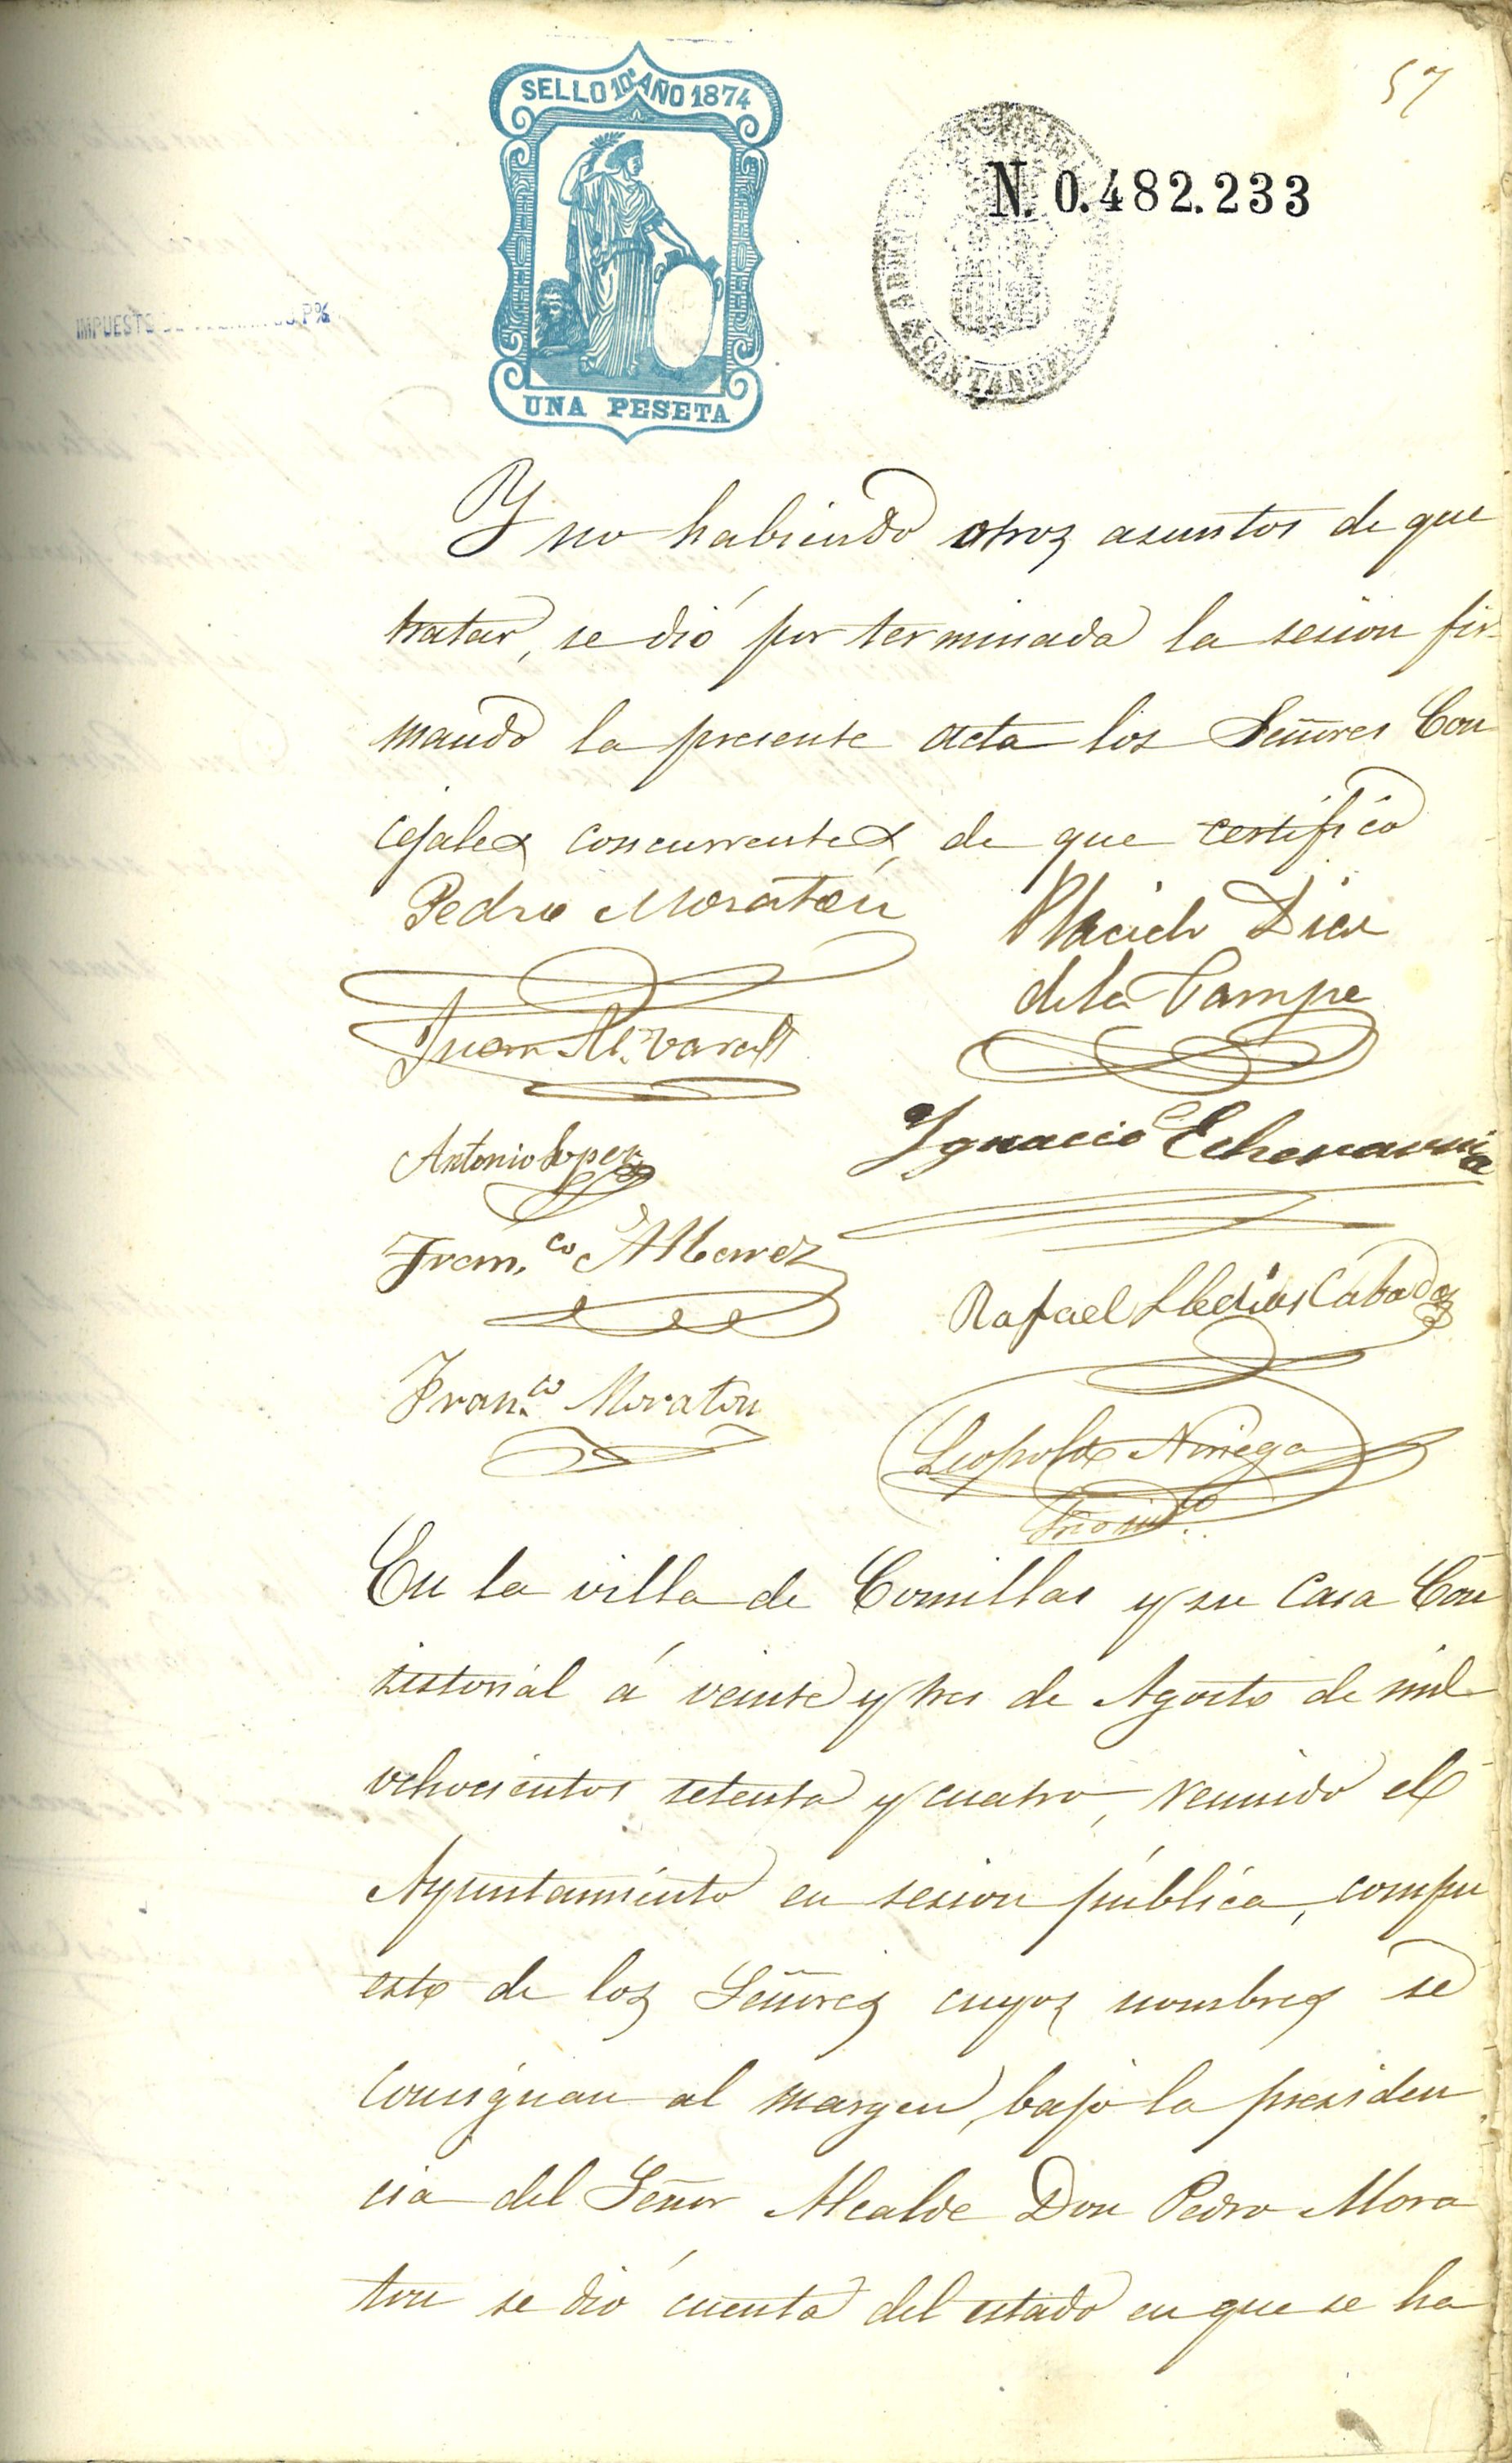 57
SELLO 10º AÑO 1874
N. 0.482.233
IMPUESTO P%
UNA PESETA
Y no habiendo otros asuntos de que
tratar, se dió por terminada la sesion fir-
mando la presente acta los Señores Con
cejales concurrentes, de que certifico
Pedro Moratón
Placido Diaz
de la Campa
Juan M.
Antonio Lopez
Ignacio Echevarria
Fran.co Alvarez
Rafael Lledias Cabada
Fran.co Moraton
Leopoldo Noriega
En la villa de Comillas y su Casa Con
sistorial á veinte y tres de Agosto de mil
ochocientos setenta y cuatro, reunido el
Ayuntamiento en sesion pública, compu
esto de los Señores cuyos nombres se
consignan al margen, bajo la presiden
cia del Señor Alcalde Don Pedro Mora
ton se dió cuenta del estado en que se ha